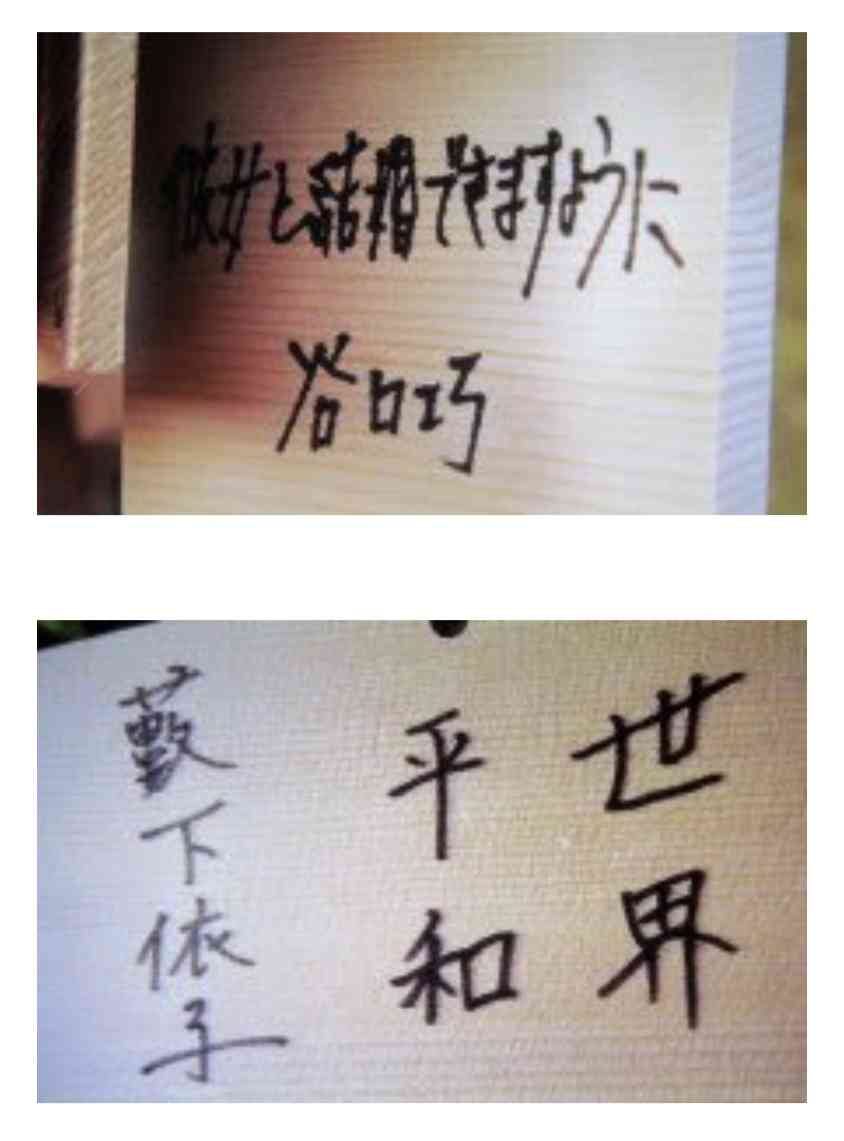 彼女と結婚できますように
谷口巧
世界
平和
藪下依子